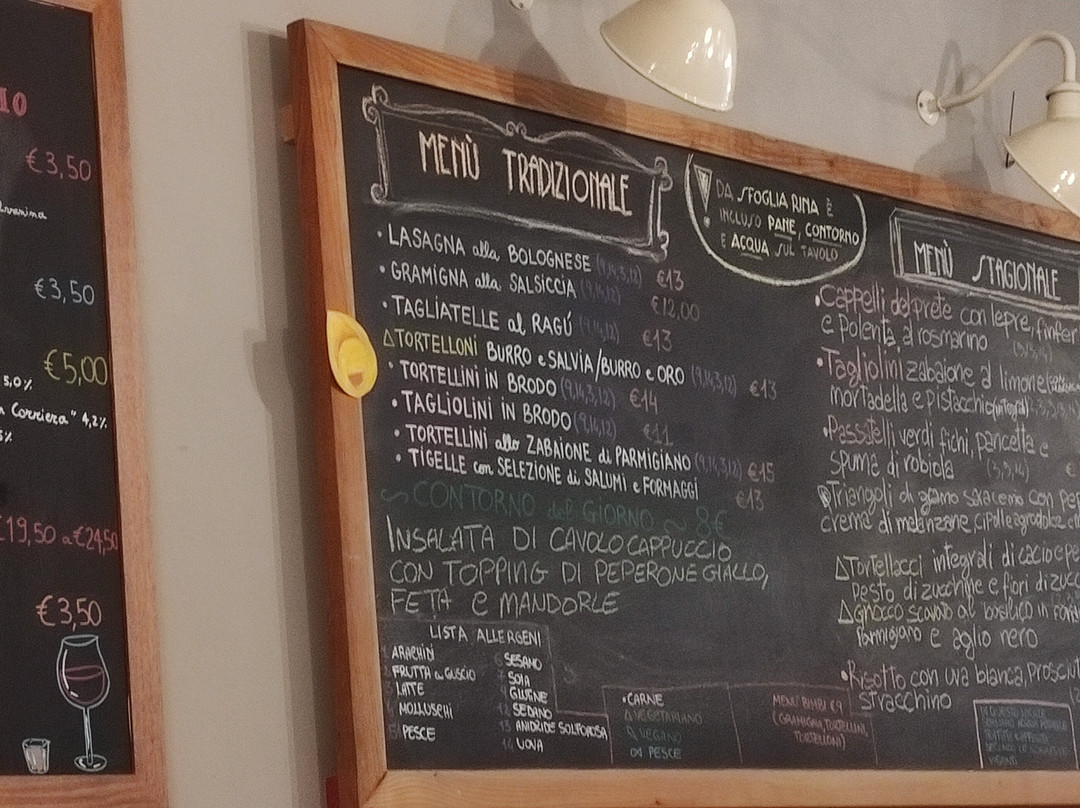 €3,50
€3,50
€5,00
5,0%
Corriera" 4,2%
€19,50 a €24,50
€3,50
MENÙ TRADIZIONALE
• LASAGNA alla BOLOGNESE (9,14,3,12) €13
• GRAMIGNA alla SALSICCIA (9,14,12) €12,00
• TAGLIATELLE al RAGÚ (9,14,12) €13
△ TORTELLONI BURRO e SALVIA/BURRO e ORO (9,14,3,12) €13
• TORTELLINI IN BRODO (9,14,3,12) €14
• TAGLIOLINI IN BRODO (9,14,12) €11
• TORTELLINI allo ZABAIONE di PARMIGIANO (9,14,3,12) €15
• TIGELLE con SELEZIONE di SALUMI e FORMAGGI €13
~ CONTORNO del GIORNO ~ 8€
INSALATA DI CAVOLO CAPPUCCIO
CON TOPPING DI PEPERONE GIALLO,
FETA E MANDORLE
LISTA ALLERGENI
ARACHIDI
FRUTTA a GUSCIO
LATTE
MOLLUSCHI
PESCE
SESAMO
SOIA
9 GLUTINE
12 SEDANO
13 ANIDRIDE SOLFOROSA
14 UOVA
• CARNE
△ VEGETARIANO
VEGANO
PESCE
MENÙ BIMBI €9
(GRAMIGNA, TORTELLINI,
TORTELLONI)
! DA SFOGLIA RINA È
INCLUSO PANE, CONTORNO
E ACQUA SUL TAVOLO
MENÙ STAGIONALE
• Cappelli del prete con lepre,
e Polenta al rosmarino
• Tagliolini zabaione al limone
mortadella e pistacchio
• Passatelli verdi fichi, pancetta e
spuma di robiola (3,9,14) €
Triangoli di grano saraceno con
crema di melanzane, cipolle agrodolce
△ Tortellacci integrali di cacio e pe
pesto di zucchine e fiori di zucc
△ Gnocco scavato al basilico in
parmigiano e aglio nero
• Risotto con uva bianca, prosciut
stracchino